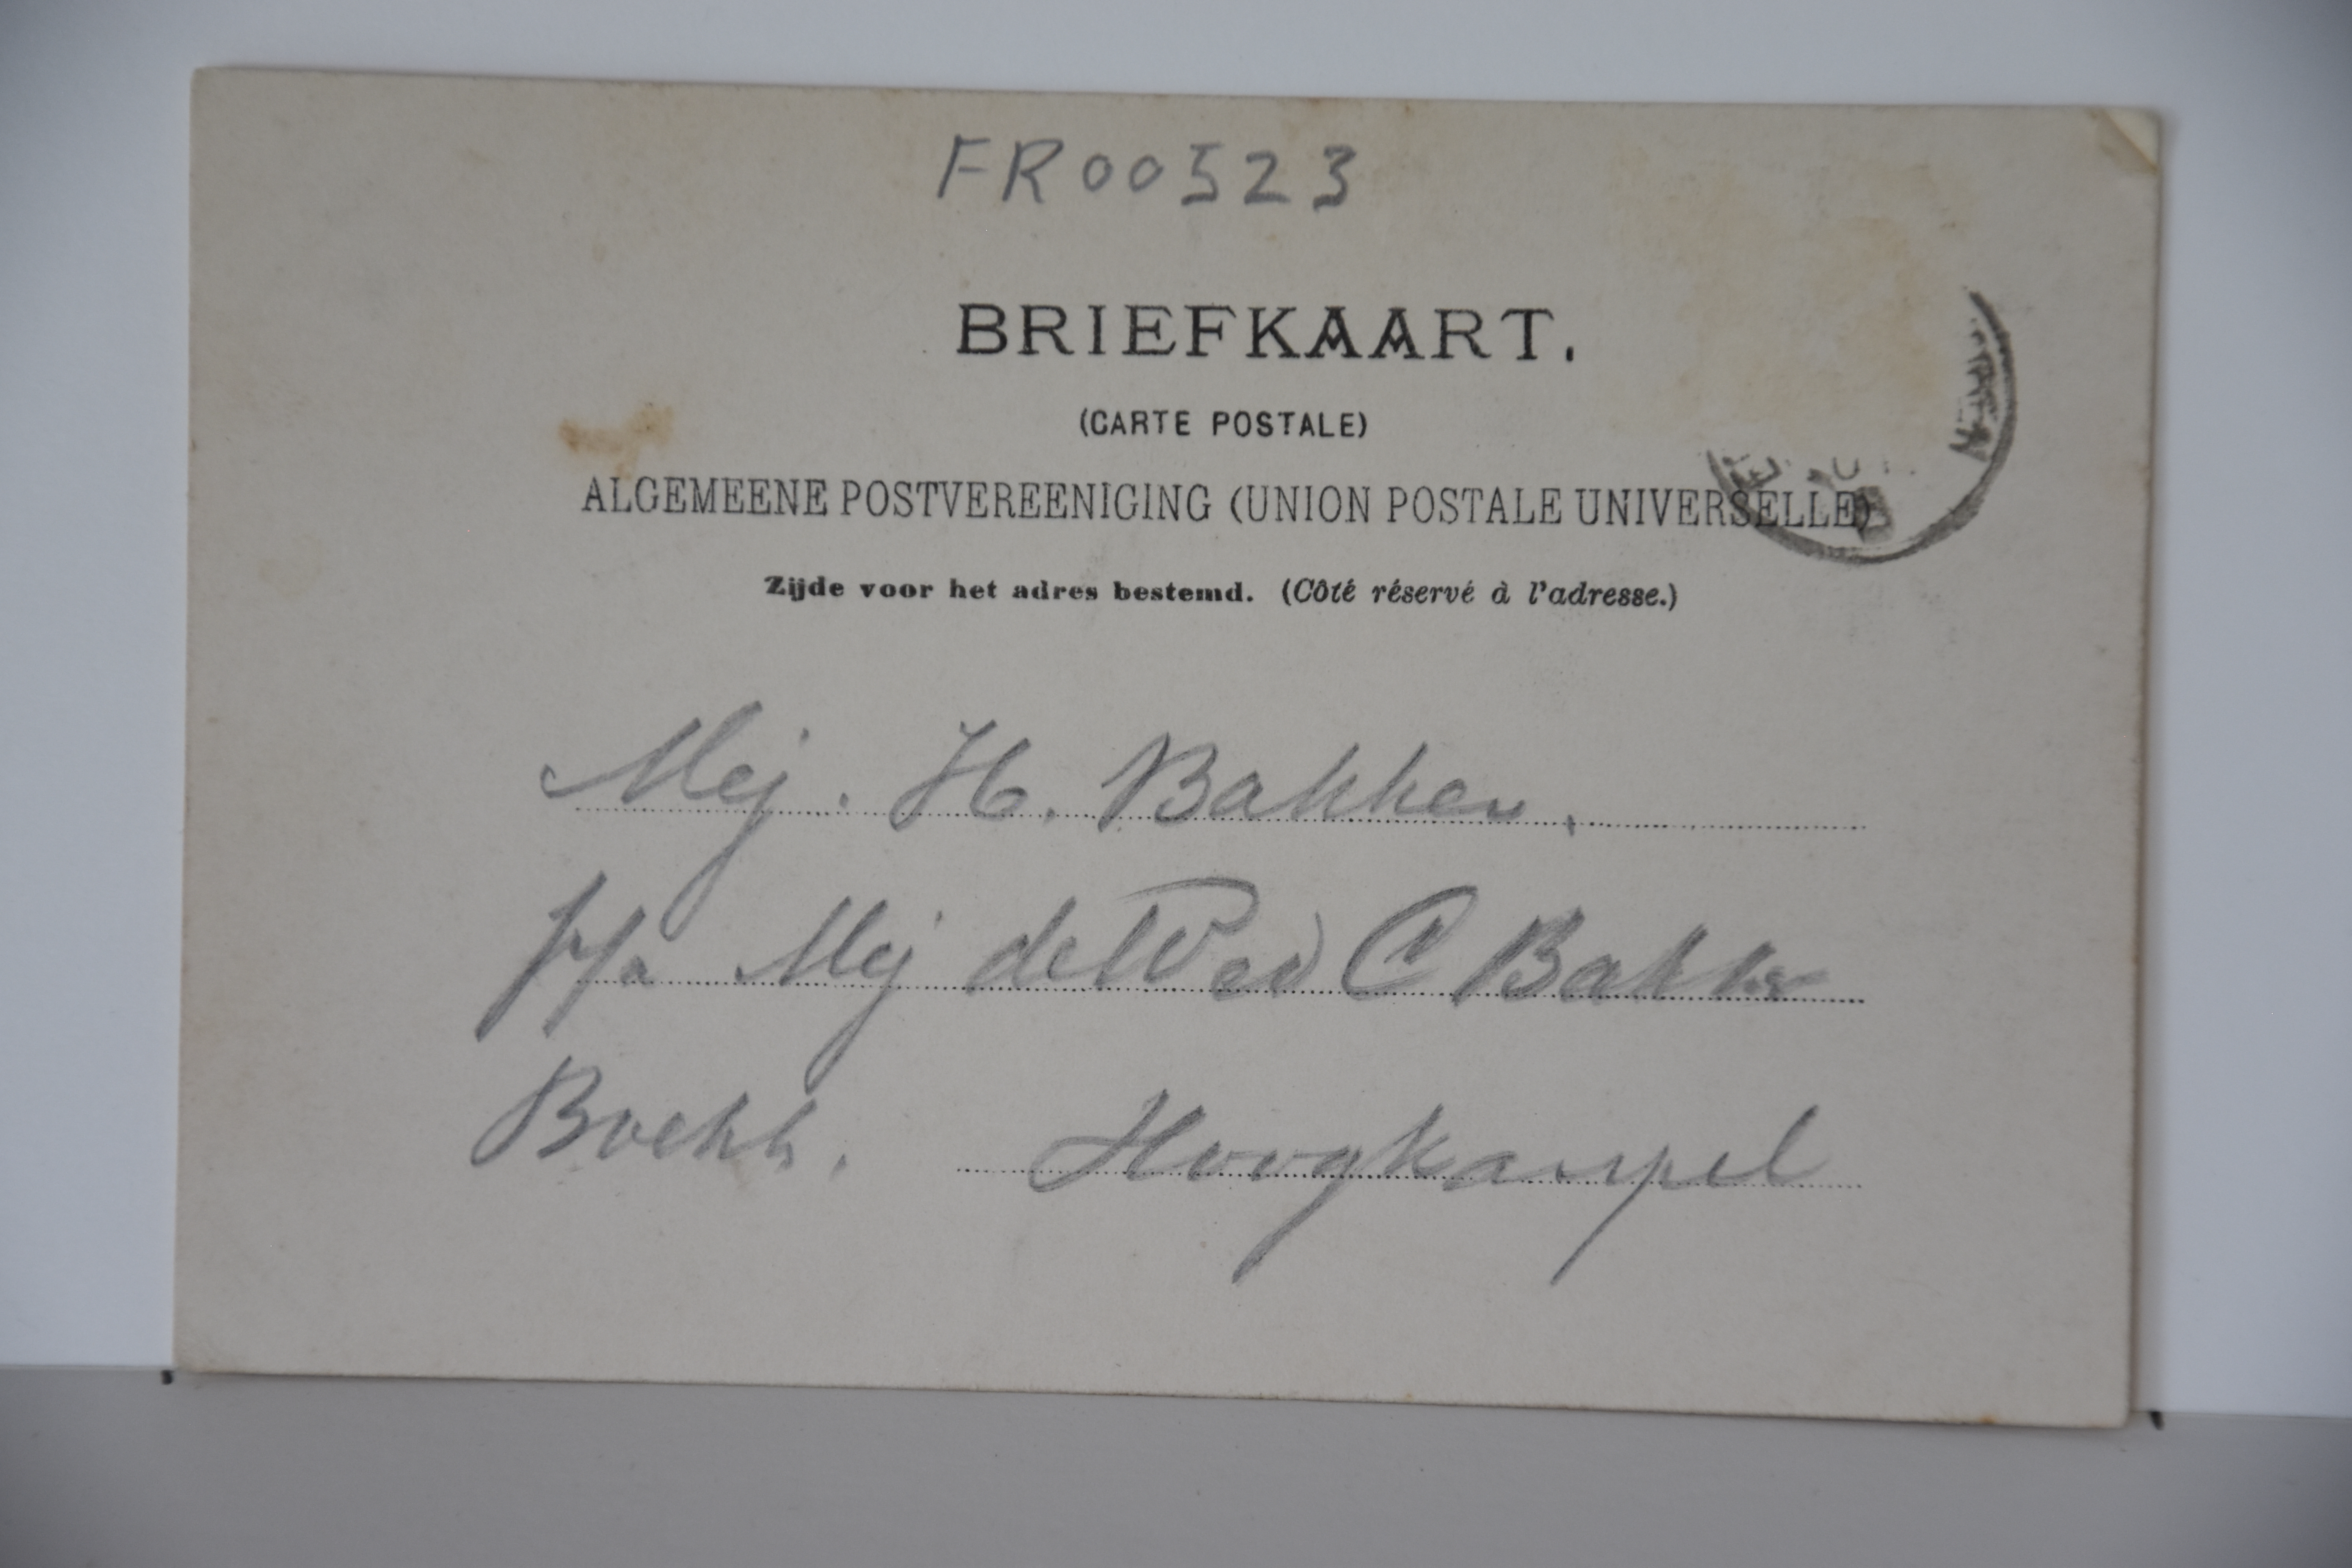 FR00523
BRIEFKAART.
(CARTE POSTALE)
ALGEMEENE POSTVEREENIGING (UNION POSTALE UNIVERSELLE)
Zijde voor het adres bestemd. (Côté réservé à l'adresse.)
Mej. H. Bakker,
p/a Mej de Wed C Bakker
Boekh. Hoogkarspel